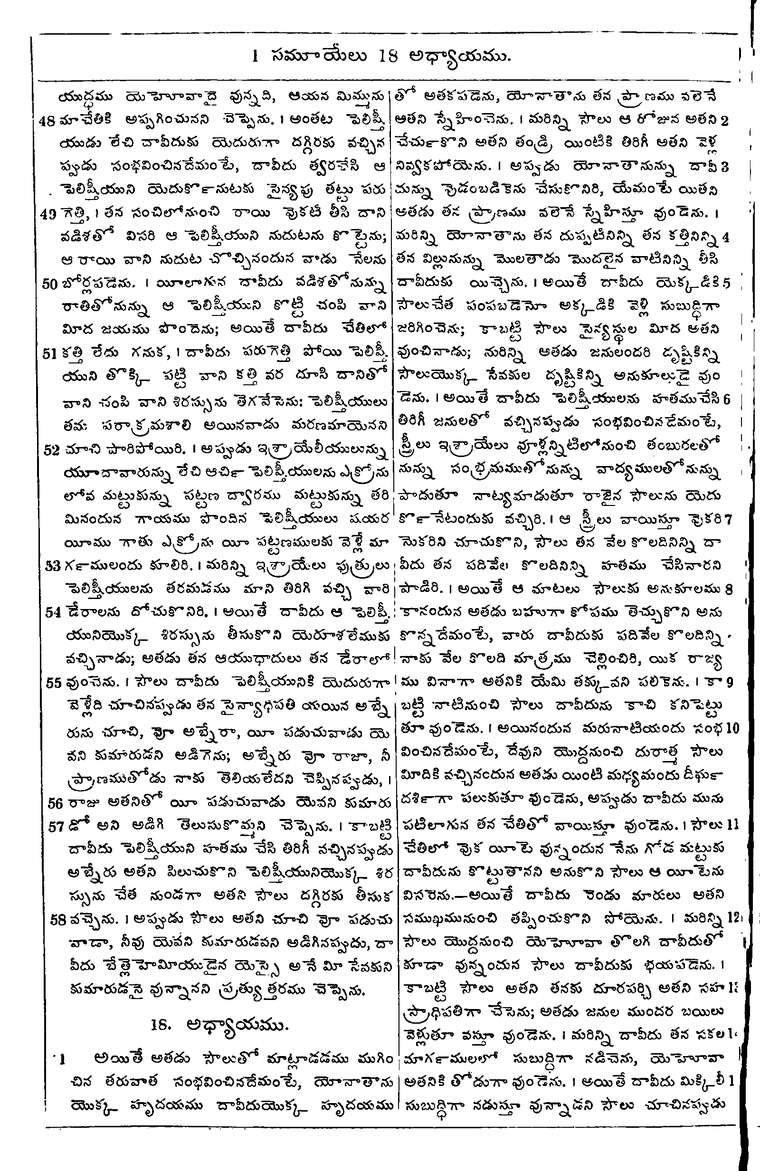 1 సమూయేలు 18 అధ్యాయము.
యుద్ధము యెహోవాదై వున్నది, ఆయన మిమ్మును
48 మాచేతికి అప్పగించునని చెప్పెను. । అంతట పెలిష్తీ
యుడు లేచి దావీదుకు యెదురుగా దగ్గిరకు వచ్చిన
ప్పుడు సంభవించినదేమంటే, దావీదు త్వరచేసి ఆ
పెలిష్తీయుని యెదుర్కొనుటకు సైన్యపు తట్టు పరు
49 గెత్తి, । తన సంచిలోనుంచి రాయి వొకటి తీసి దాని
వడిశతో విసరి ఆ పెలిష్తీయుని నుదుటను కొట్టెను;
ఆ రాయి వాని నుదుట చొచ్చినందున వాడు నేలను
50 బోర్లపడెను. । యీలాగున దావీదు వడిశతోనున్ను
రాతితోనున్ను ఆ పెలిష్తీయుని కొట్టి చంపి వాని
మీద జయము పొందెను; అయితే దావీదు చేతిలో
51 కత్తి లేదు గనుక, । దావీదు పరుగెత్తి పోయి పెలిష్తీ
యుని తొక్కి పట్టి వాని కత్తి వర దూసి దానితో
వాని చంపి వాని శిరస్సును తెగవేసెను: పెలిష్తీయులు
తమ పరాక్రమశాలి అయినవాడు మరణమాయెనని
52 చూచి పారిపోయిరి. । అప్పుడు ఇశ్రాయేలీయులున్ను
యూదావారున్ను లేచి ఆర్చి పెలిష్తీయులను ఎక్రోను
లోవ మట్టుకున్ను పట్టణ ద్వారము మట్టుకున్ను తరి
మినందున గాయము పొందిన పెలిష్తీయులు షయర
యీము గాతు ఎక్రోను యీ పట్టణములకు వెళ్లే మా
53 ర్గములందు కూలిరి. । మరిన్ని ఇశ్రాయేలు పుత్రులు
పెలిష్తీయులను తరమడము మాని తిరిగి వచ్చి వారి
54 డేరాలను దోచుకొనిరి. । అయితే దావీదు ఆ పెలిష్తీ
యునియొక్క శిరస్సును తీసుకొని యెరూశలేముకు
వచ్చినాడు; అతడు తన ఆయుధాదులు తన డేరాలో
55 వుంచెను. । సౌలు దావీదు పెలిష్తీయునికి యెదురుగా
వెళ్లేది చూచినప్పుడు తన సైన్యాధిపతి యయిన అబ్నే
రును చూచి, వోా అబ్నేరా, యీ పడుచువాడు యె
వని కుమారుడని అడిగెను; అబ్నేరు వోా రాజా, నీ
ప్రాణముతోడు నాకు తెలియలేదని చెప్పినప్పుడు, ।
56 రాజు అతనితో యీ పడుచువాడు యెవని కుమారు
57 డో అని అడిగి తెలుసుకొమ్మని చెప్పెను. । కాబట్టి
దావీదు పెలిష్తీయుని హతము చేసి తిరిగీ వచ్చినప్పుడు
అబ్నేరు అతని పిలుచుకొని పెలిష్తీయునియొక్క శిర
స్సును చేత నుండగా అతని సౌలు దగ్గిరకు తీసుక
58 వచ్చెను. । అప్పుడు సౌలు అతని చూచి వోా పడుచు
వాడా, నీవు యెవని కుమారుడవని అడిగినప్పుడు, దా
వీదు బేత్లెహెమీయుడైన యెస్సై అనే మీ సేవకుని
కుమారుడనై వున్నానని ప్రత్యుత్తరము చెప్పెను.
18. అధ్యాయము.
1 అయితే అతడు సౌలుతో మాట్లాడడము ముగిం
చిన తరువాత సంభవించినదేమంటే, యోనాతాను
యొక్క హృదయము దావీదుయొక్క హృదయము
తో అతకపడెను, యోనాతాను తన ప్రాణము వలెనే
అతని స్నేహించెను. । మరిన్ని సౌలు ఆ రోజున అతని 2
చేర్చుకొని అతని తండ్రి యింటికి తిరిగీ అతని వెళ్ల
నివ్వకపోయెను. । అప్పుడు యోనాతానున్ను దావీ 3
దున్ను వొడంబడికెను చేసుకొనిరి, యేమంటే యితని
అతడు తన ప్రాణము వలెనే స్నేహిస్తూ వుండెను. ।
మరిన్ని యోనాతాను తన దుప్పటినిన్ని తన కత్తినిన్ని 4
తన విల్లునున్ను మొలతాడు మొదలైన వాటినిన్ని తీసి
దావీదుకు యిచ్చెను. । అయితే దావీదు యెక్కడికి 5
సౌలుచేత పంపబడెనో అక్కడికి వెళ్లి సుబుద్ధిగా
జరిగించెను; కాబట్టి సౌలు సైన్యస్థుల మీద అతని
వుంచినాడు; మరిన్ని అతడు జనులందరి దృష్టికిన్ని
సౌలుయొక్క సేవకుల దృష్టికిన్ని అనుకూలుడై వుం
డెను. । అయితే దావీదు పెలిష్తీయులను హతముచేసి 6
తిరిగీ జనులతో వచ్చినప్పుడు సంభవించినదేమంటే,
స్త్రీలు ఇశ్రాయేలు వూళ్లన్నిటిలోనుంచి తంబురలతో
నున్ను సంభ్రమముతోనున్ను వాద్యములతోనున్ను
పాడుతూ నాట్యమాడుతూ రాజైన సౌలును యెదు
ర్కొనేటందుకు వచ్చిరి. । ఆ స్త్రీలు వాయిస్తూ వొకరి 7
నొకరిని చూచుకొని, సౌలు తన వేల కొలదినిన్ని దా
వీదు తన పదివేల కొలదినిన్ని హతము చేసినారని
పాడిరి. । అయితే ఆ మాటలు సౌలుకు అనుకూలము 8
కానందున అతడు బహుగా కోపము తెచ్చుకొని అను
కొన్నదేమంటే, వారు దావీదుకు పదివేల కొలదిన్ని
నాకు వేల కొలది మాత్రము చెల్లించిరి, యిక రాజ్య
ము వినాగా అతనికి యేమి తక్కువని పలికెను. । కా 9
బట్టి నాటినుంచి సౌలు దావీదును కాచి కనిపెట్టు
తూ వుండెను. । అయినందున మరునాటియందు సంభ 10
వించినదేమంటే, దేవుని యొద్దనుంచి దురాత్మ సౌలు
మీదికి వచ్చినందున అతడు యింటి మధ్యమందు దీర్ఘ
దర్శిగా పలుకుతూ వుండెను, అప్పుడు దావీదు మును
పటిలాగున తన చేతితో వాయిస్తూ వుండెను. । సౌలు 11
చేతిలో వొక యీటె వున్నందున నేను గోడ మట్టుకు
దావీదును కొట్టుతానని అనుకొని సౌలు ఆ యీటెను
విసరెను.—అయితే దావీదు రెండు మారులు అతని
సముఖమునుంచి తప్పించుకొని పోయెను. । మరిన్ని 12
సౌలు యొద్దనుంచి యెహోవా తొలగి దావీదుతో
కూడా వున్నందున సౌలు దావీదుకు భయపడెను. ।
కాబట్టి సౌలు అతని తనకు దూరపర్చి అతని సహ 13
స్రాధిపతిగా చేసెను; అతడు జనుల ముందర బయిలు
వెళ్లుతూ వస్తూ వుండెను. । మరిన్ని దావీదు తన సకల 1
మార్గములలో సుబుద్ధిగా నడిచెను, యెహోవా
అతనికి తోడుగా వుండెను. । అయితే దావీదు మిక్కిలీ 1
సుబుద్ధిగా నడుస్తూ వున్నాడని సౌలు చూచినప్పుడు